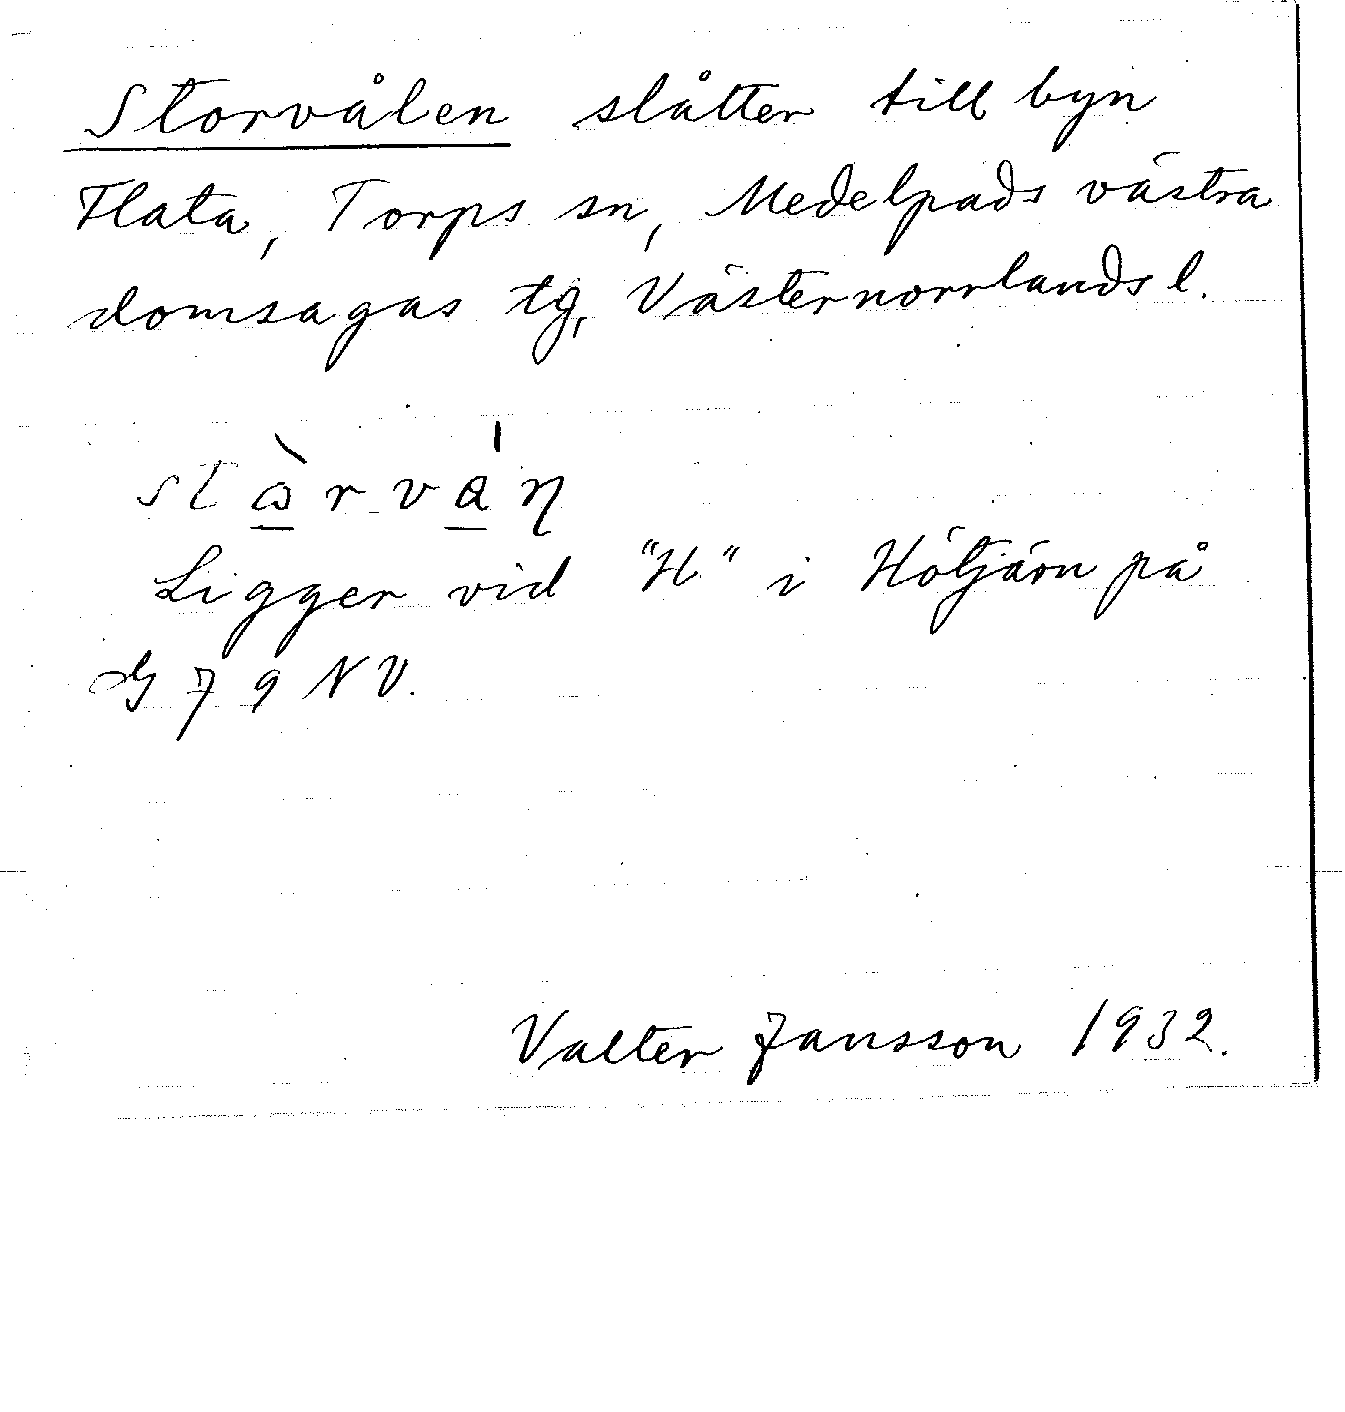 Storvålen slåtter till byn
Flata, Torps sn, Medelpads västra
domsagas tg, Västernorrlands l.
Ligger vid "H" i Hötjärn på
G 79 NV.
Valter Jansson 1932.